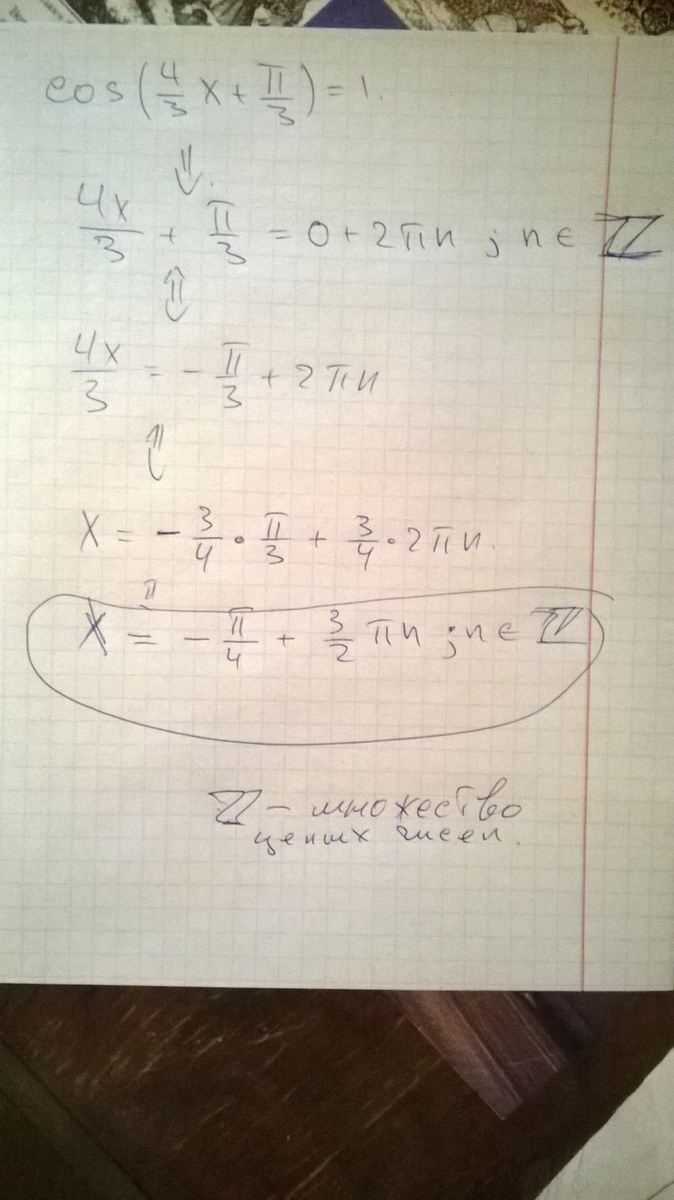 cos(4/3 x + π/3) = 1.
⇓.
4x/3 + π/3 = 0 + 2πn ; n ∈ ℤ
⇕
4x/3 = - π/3 + 2πn
⇕
x = - 3/4 · π/3 + 3/4 · 2πn.
x = - π/4 + 3/2 πn ; n ∈ ℤ
ℤ - множество
целых чисел.